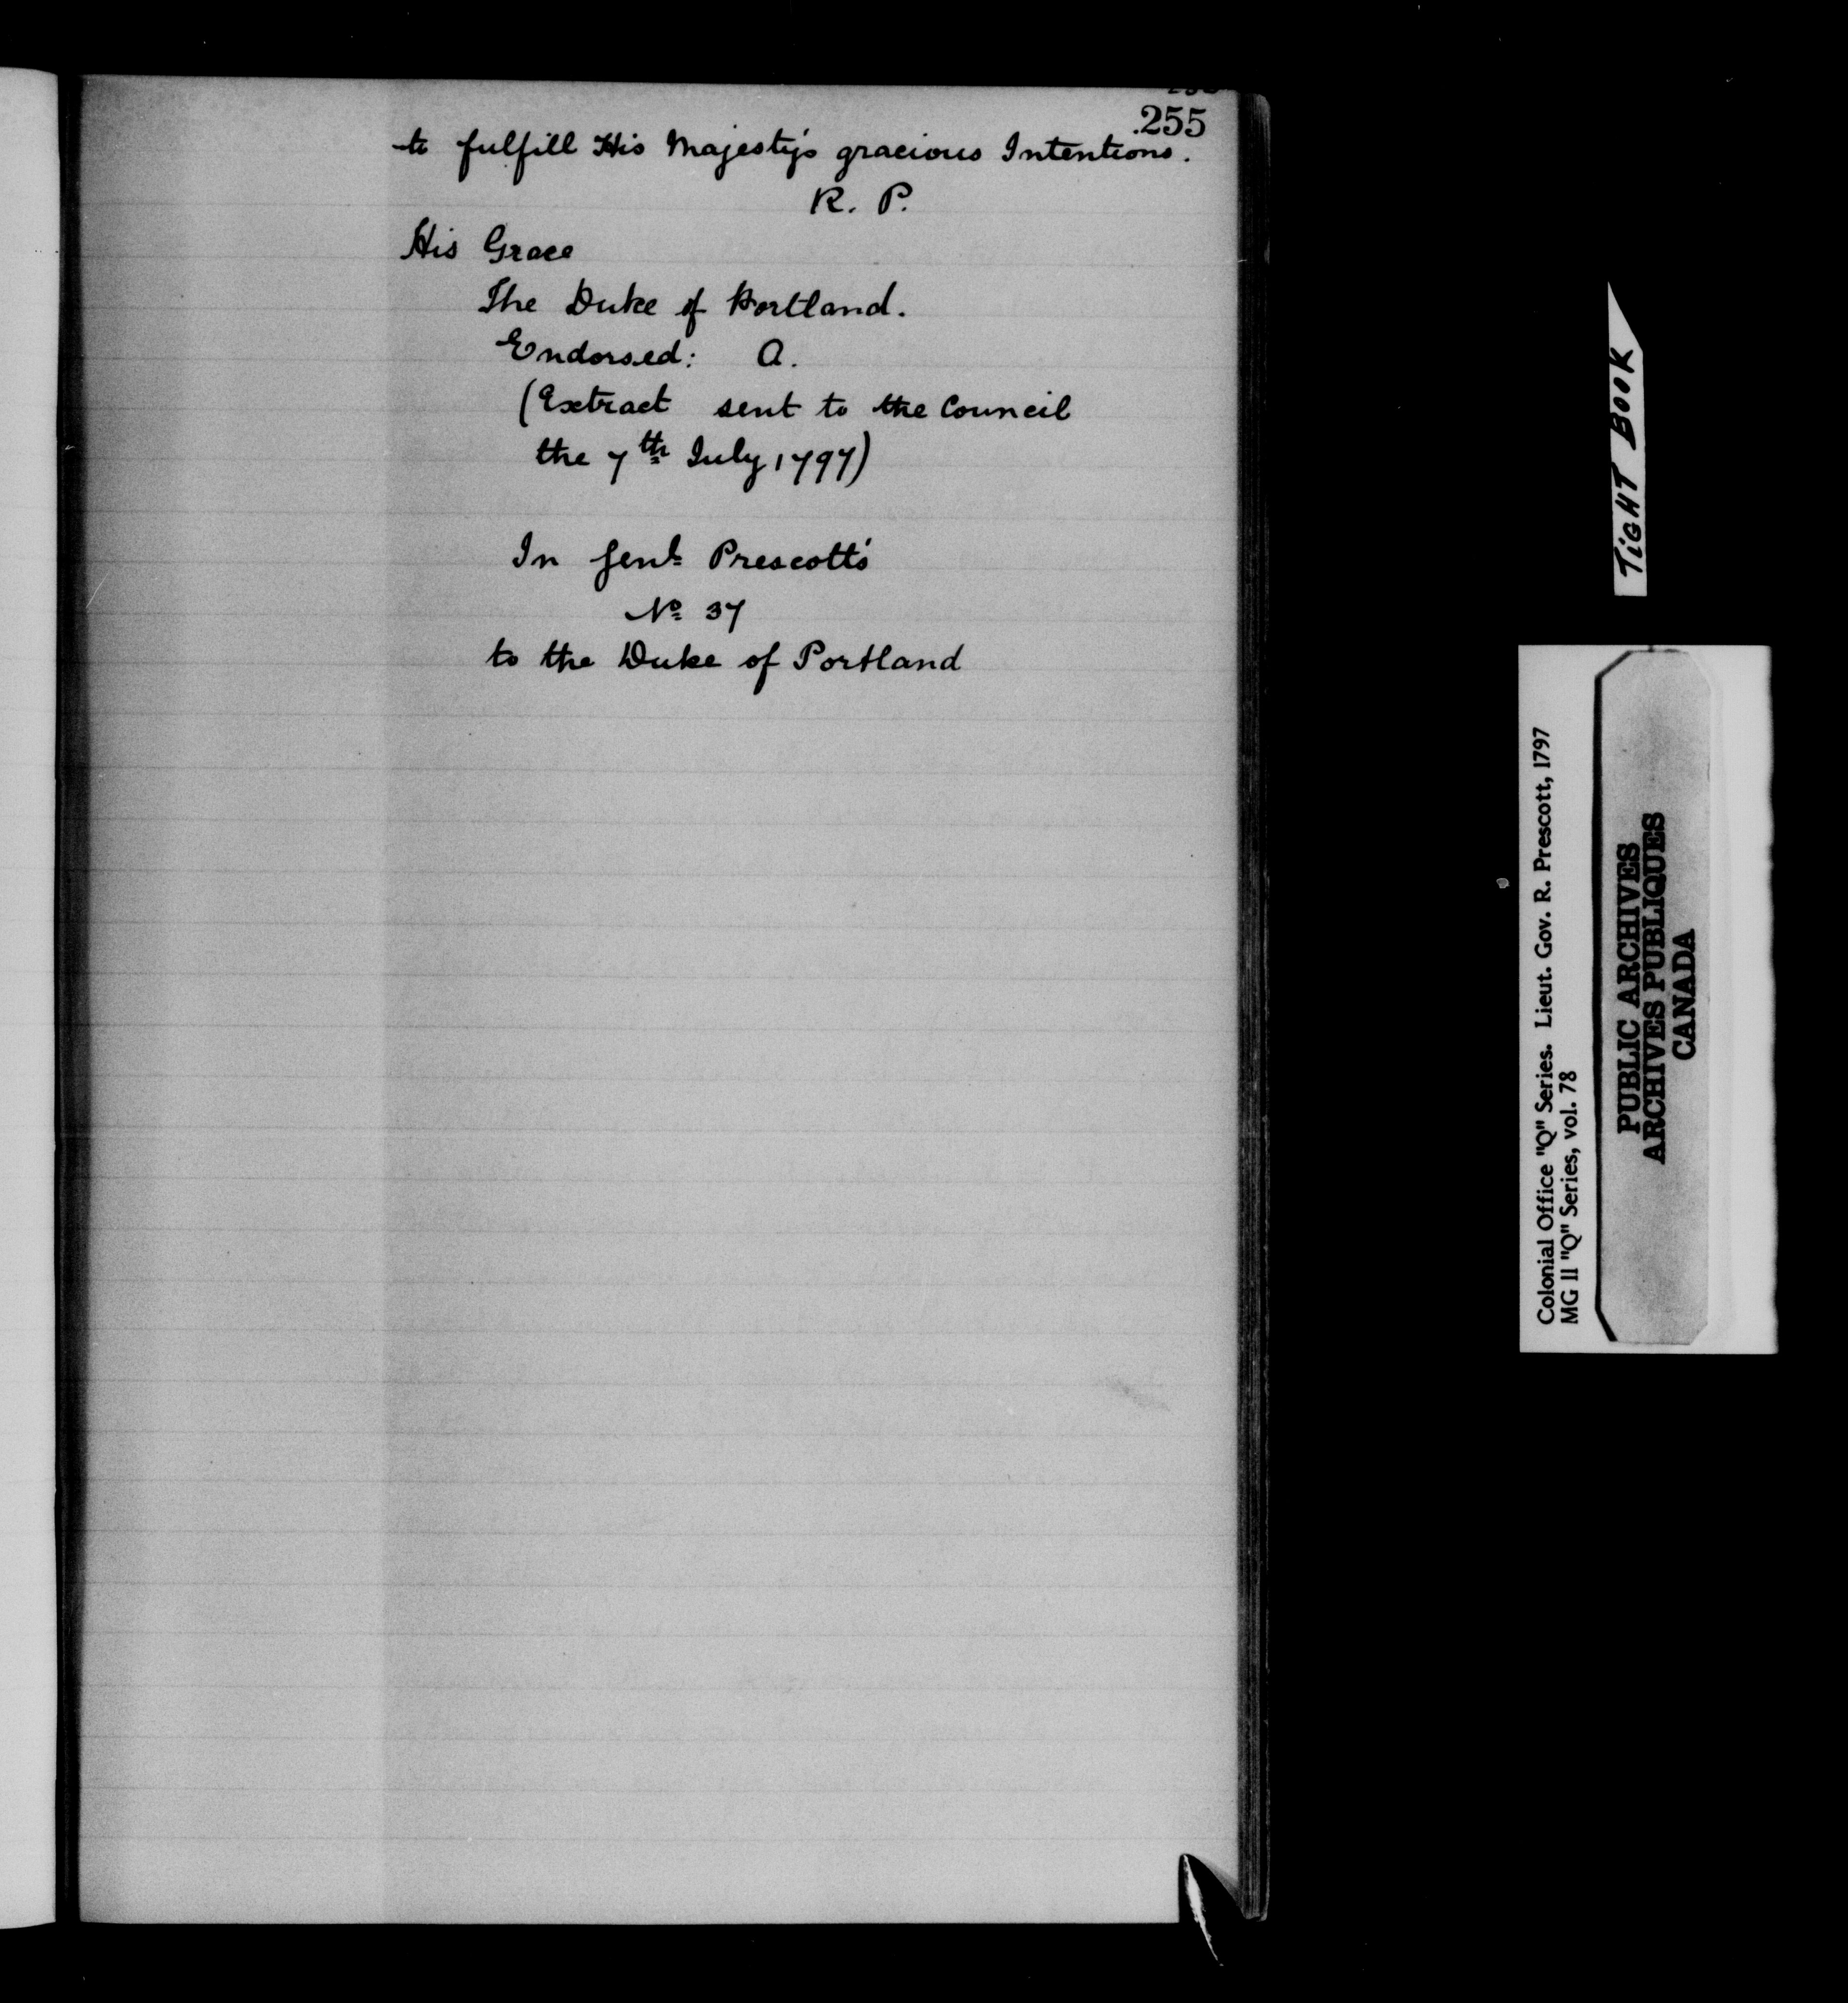 255
to fulfill His Majesty's gracious Intentions.
R. P.
His Grace
The Duke of Portland.
Endorsed: A.
(Extract sent to the Council
the 7th July, 1797)
In Genl Prescott's
No 37
to the Duke of Portland
TIGHT BOOK
Colonial Office "Q" Series. Lieut. Gov. R. Prescott, 1797
MG 11 "Q" Series, vol. 78
PUBLIC ARCHIVES
ARCHIVES PUBLIQUES
CANADA